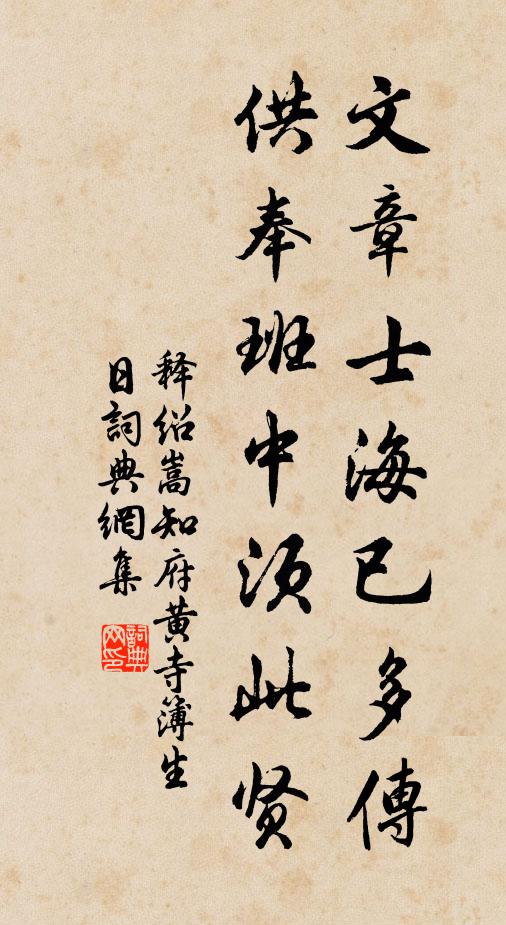 文章士海已多傳
供奉班中须此贤
释绍嵩知府黄寺簿生
日詞典網集
詞典
网印